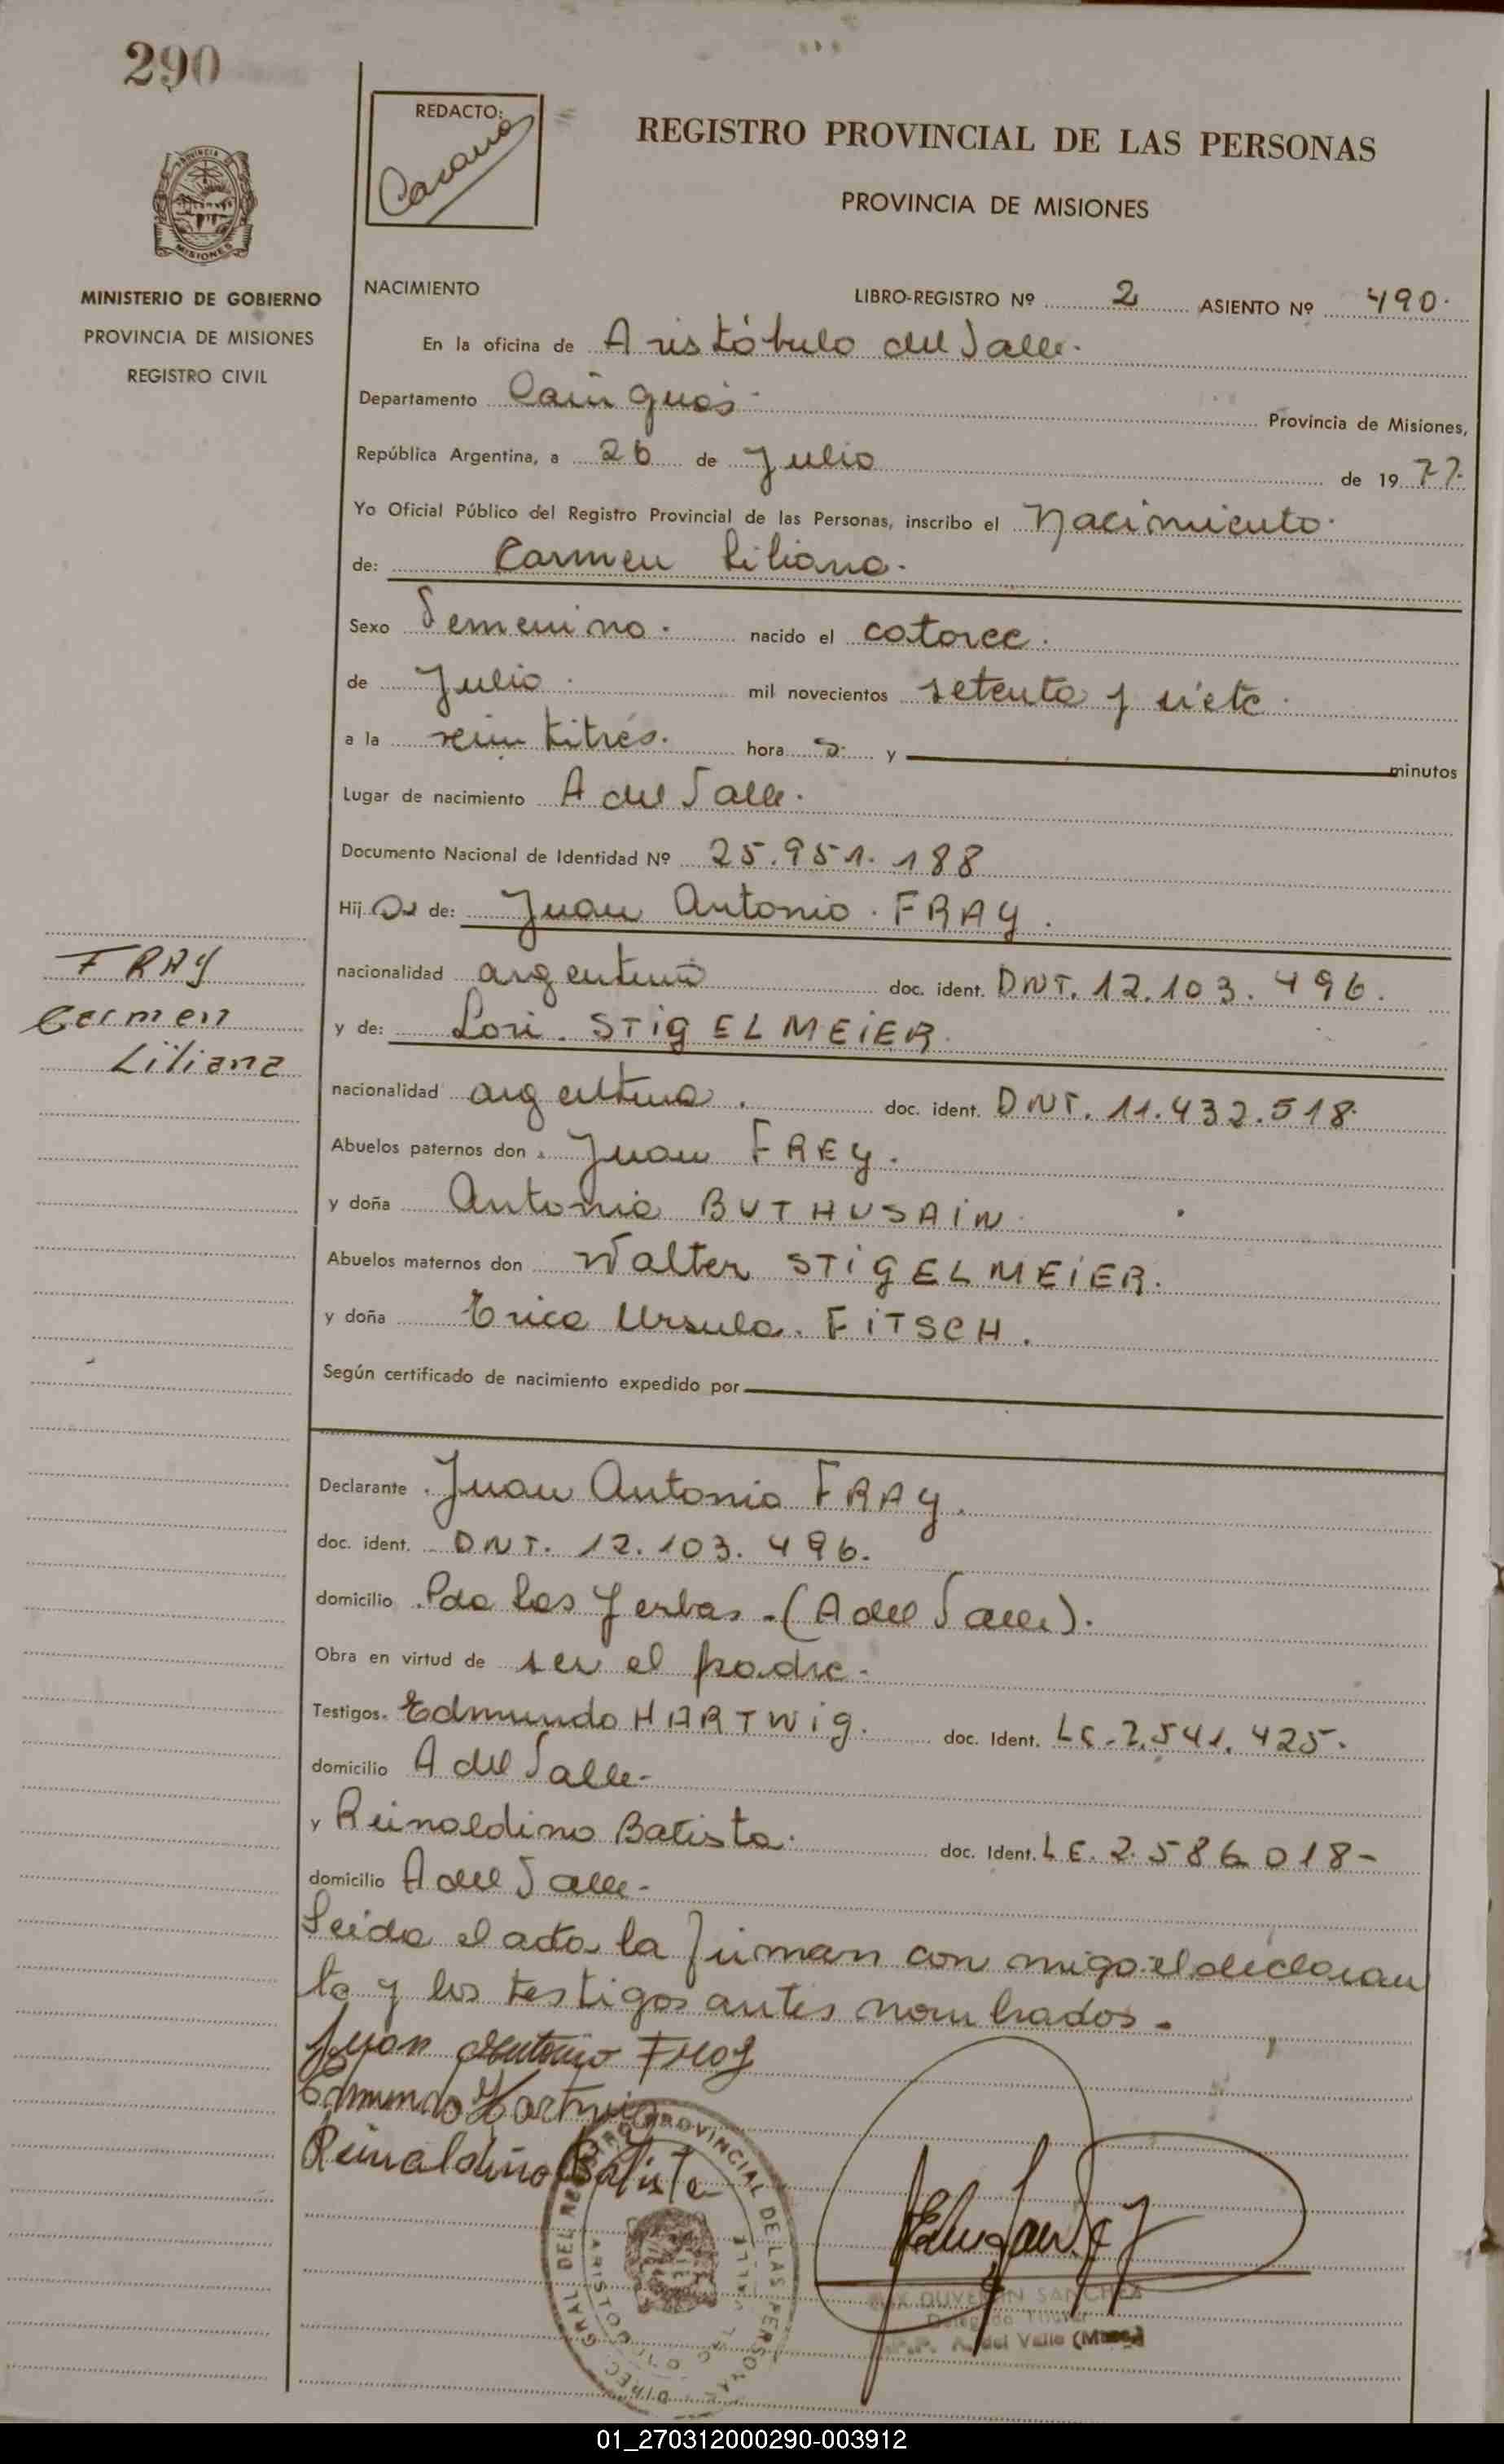 290
REDACTO:
REGISTRO PROVINCIAL DE LAS PERSONAS
PROVINCIA DE MISIONES
MINISTERIO DE GOBIERNO
PROVINCIA DE MISIONES
REGISTRO CIVIL
NACIMIENTO
LIBRO-REGISTRO Nº 2 ASIENTO Nº 490.
En la oficina de Aristóbulo del Valle.
Departamento Cainguás Provincia de Misiones,
República Argentina, a 26 de Julio de 1977.
Yo Oficial Público del Registro Provincial de las Personas, inscribo el Nacimiento.
de: Carmen Liliana.
Sexo Femenino. nacido el catorce.
de Julio. mil novecientos setenta y siete.
a la veintitrés. hora s. y minutos
Lugar de nacimiento A del Valle.
Documento Nacional de Identidad Nº 25.951.188
Hij a de: Juan Antonio. FRAY.
nacionalidad argentino doc. ident. DNT. 12.103.496.
y de: Lori. STIGELMEIER.
nacionalidad argentina. doc. ident. DNT. 11.432.518.
Abuelos paternos don Juan FREY.
y doña Antonia BUTHUSAIN.
Abuelos maternos don Walter STIGELMEIER.
y doña Erica Ursula. FITSCH.
Según certificado de nacimiento expedido por
FRAY
Carmen
Liliana
Declarante Juan Antonio FRAY.
doc. ident. DNT. 12.103.496.
domicilio Pda Las Yerbas. (A del Valle).
Obra en virtud de ser el padre.
Testigos. Edmundo HARTWIG. doc. Ident. LE. 7.541.425.
domicilio A del Valle-
y Reinoldino Batista. doc. Ident. L E. 2.586018-
domicilio A del Valle-
Leida el acta la firman con migo el declaran
te y los testigos antes nombrados.-
Juan Antonio Fray
Edmundo Hartwig
Reinaldino Batista
DIREC. GRAL. DEL REGISTRO PROVINCIAL DE LAS PERSONAS
ARISTOBULO DEL VALLE
SANCHEZ
Delegado Titular
R.P.P. A. del Valle (Mnes.)
01_270312000290-003912